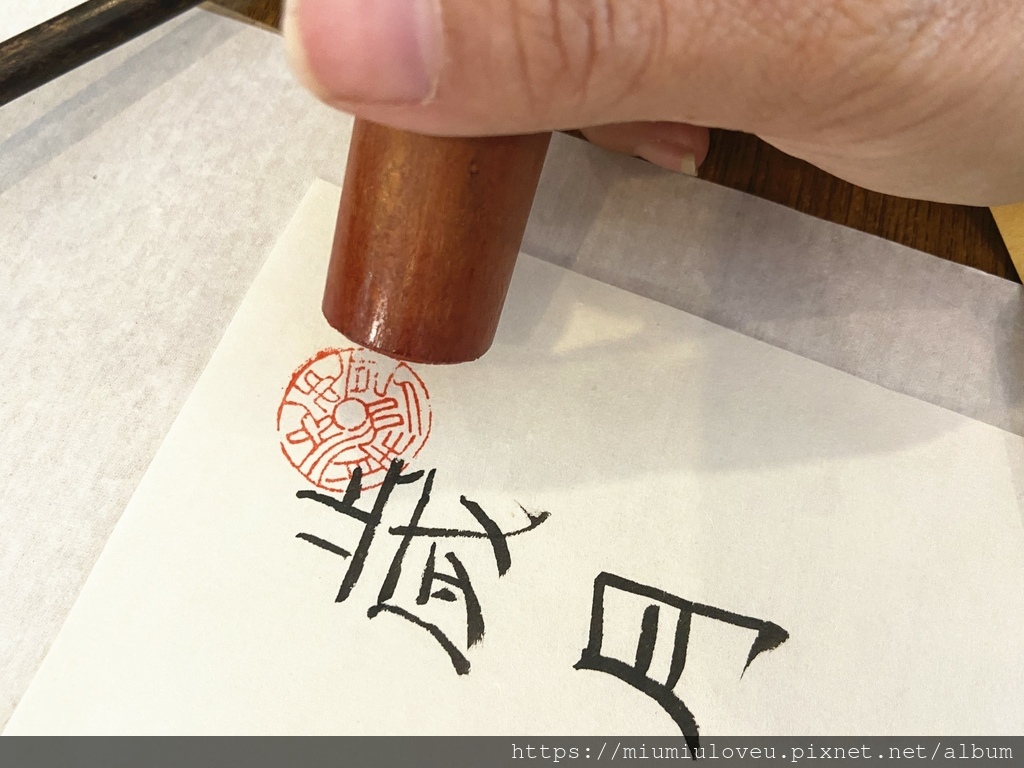 歲月
https://miumiuloveu.pixnet.net/album